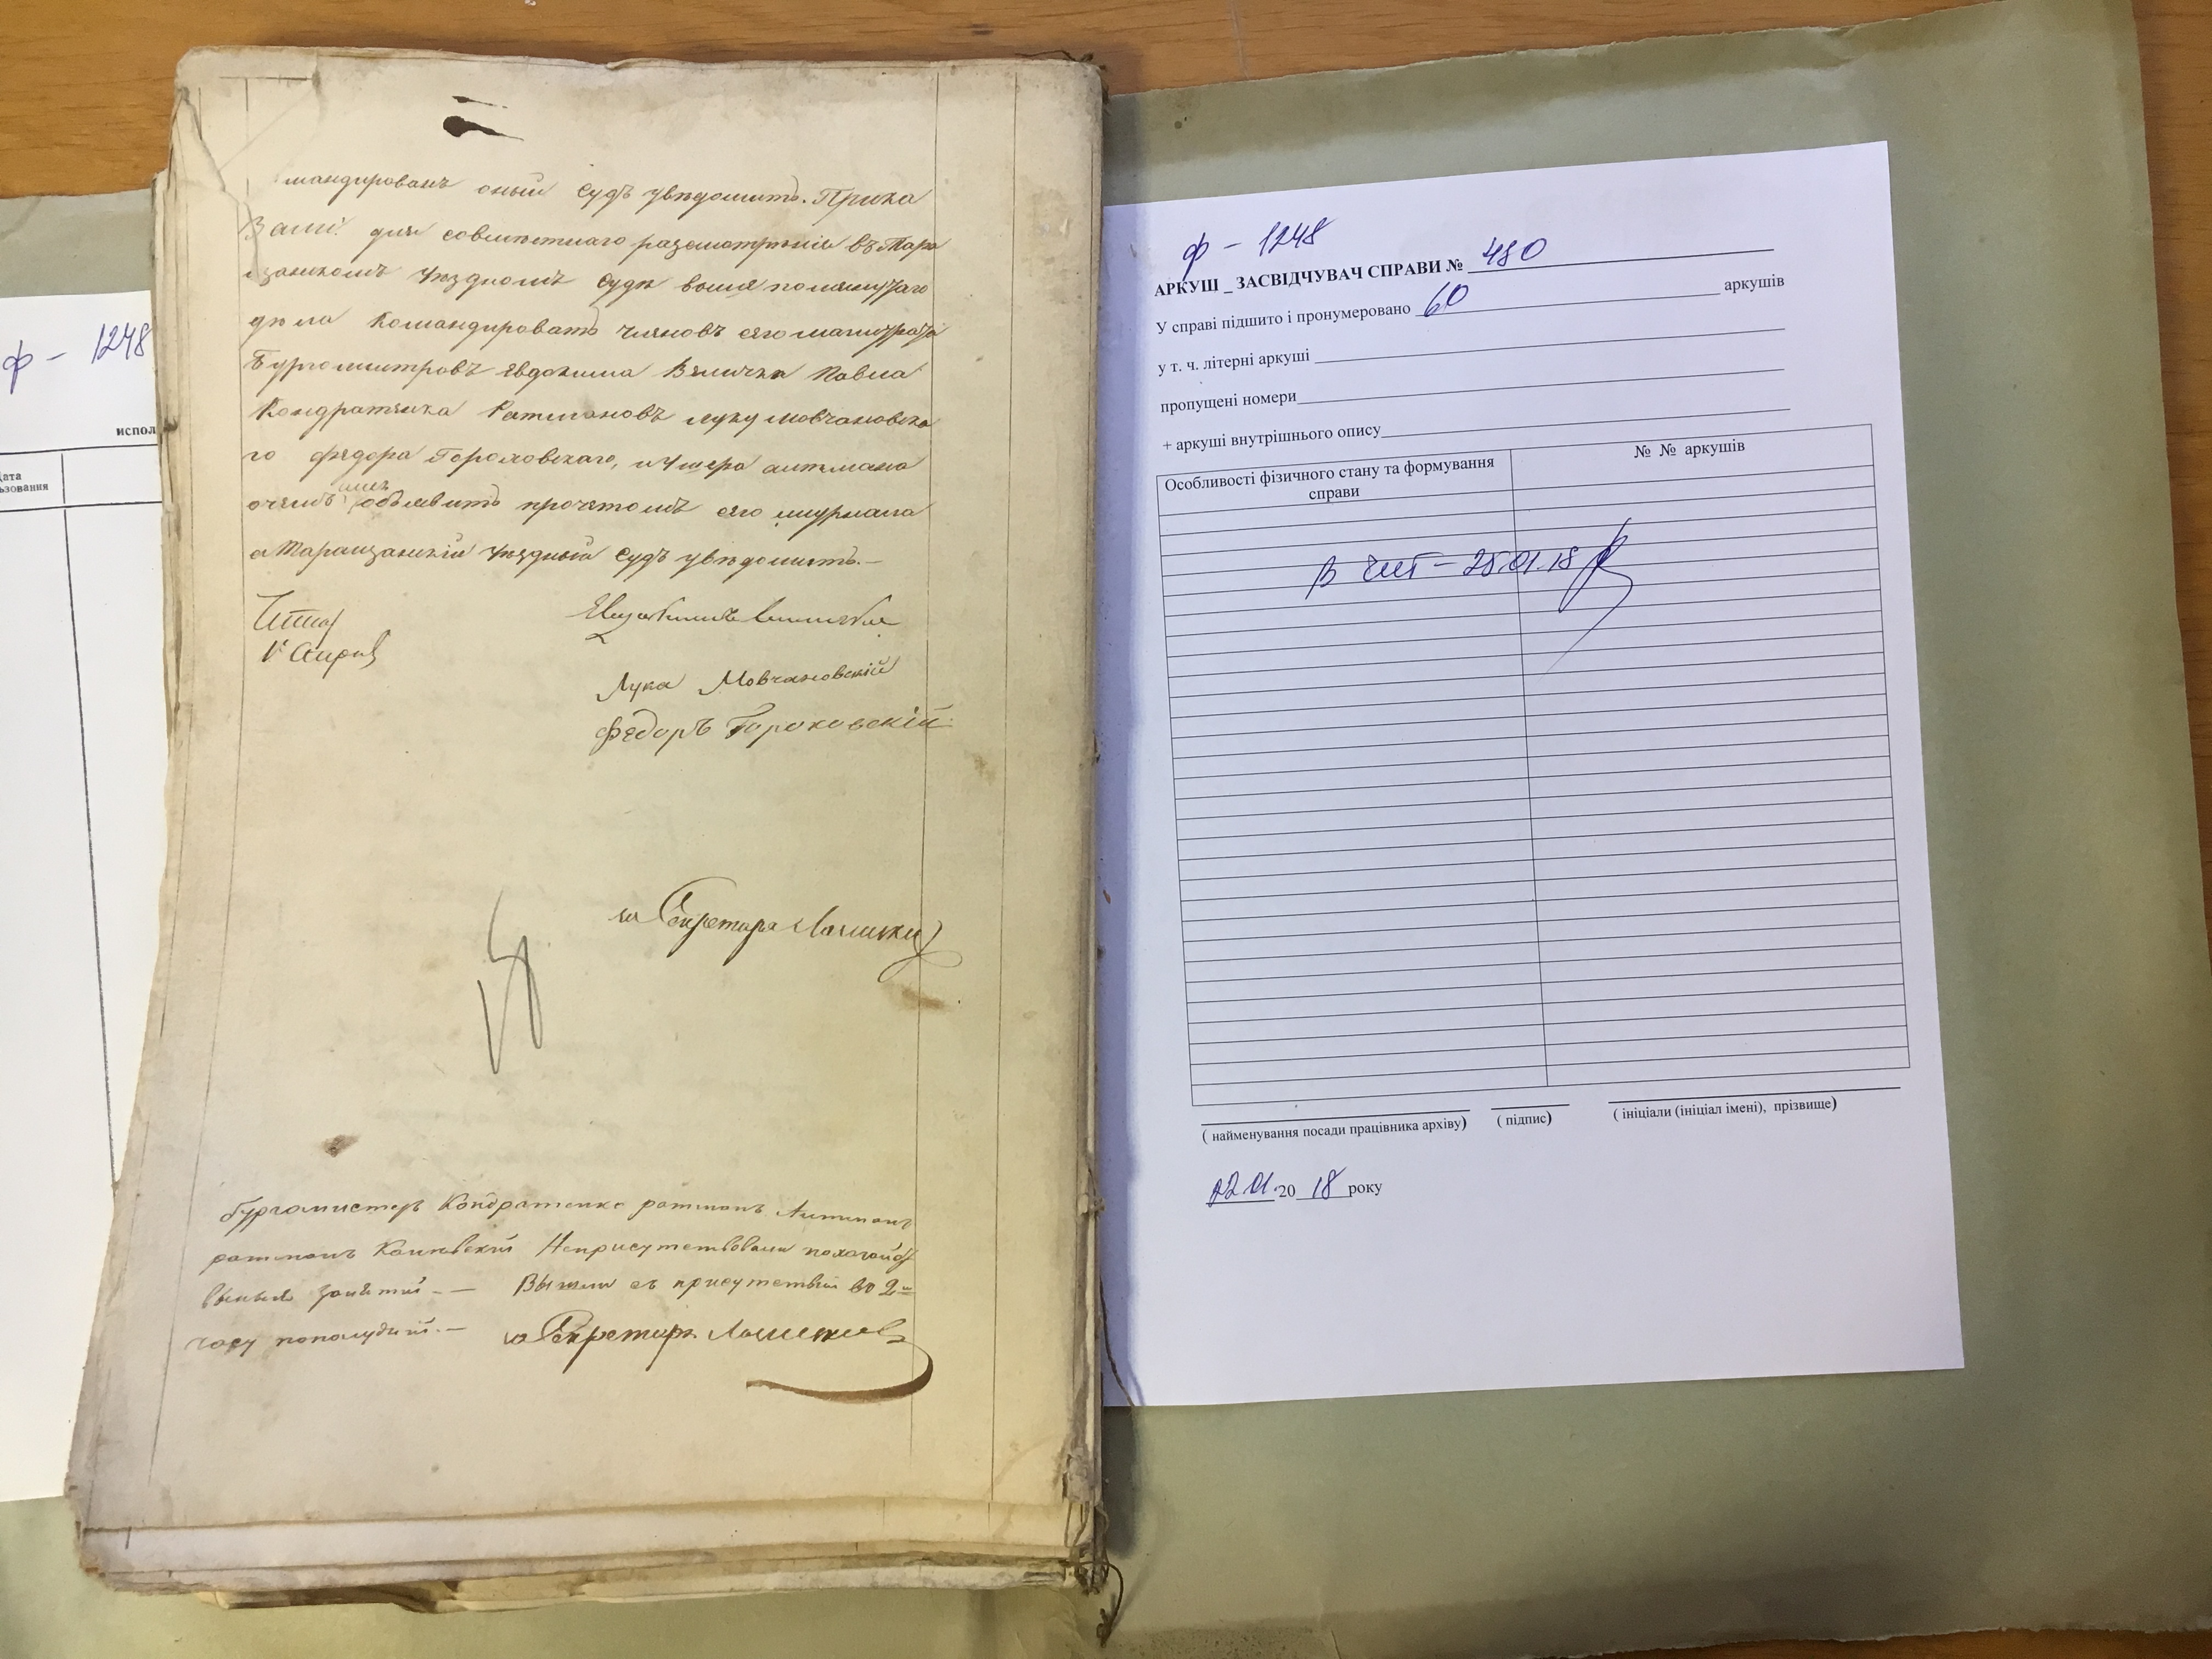 ф - 1248
испол
Дата
ьзования
мандированъ оный Судъ увѣдомить. Прика
зали: для совмѣстнаго разсмотрѣнія въ Тара
щанскомъ Уѣздномъ Судѣ выше помянутаго
дѣла командировать членовъ сего магистрата
Бургомистровъ Евдокима Величка Павла
Кондратенка Ратмановъ Луку Мовчановска
го Федора Гороховскаго, и Ушера
очемъ имъ объявить прочетомъ сего журнала
а Таращанскій Уѣздный Судъ увѣдомить.—
Лука Мовчановскій
Федоръ Гороховскій
за Секретара
бургомистеръ Кондратенко ратманъ
ратманъ Неприсутствовали
занятій. — Вышли съ присутствія во 2-м
часу пополудни. — за Секретара
ф - 1248
АРКУШ _ ЗАСВІДЧУВАЧ СПРАВИ № 480
У справі підшито і пронумеровано 60 аркушів
у т. ч. літерні аркуші
пропущені номери
+ аркуші внутрішнього опису
Особливості фізичного стану та формування справи
№ № аркушів
В чит - 25.01.18
( найменування посади працівника архіву) ( підпис) ( ініціали (ініціал імені), прізвище)
22.01.20 18 року